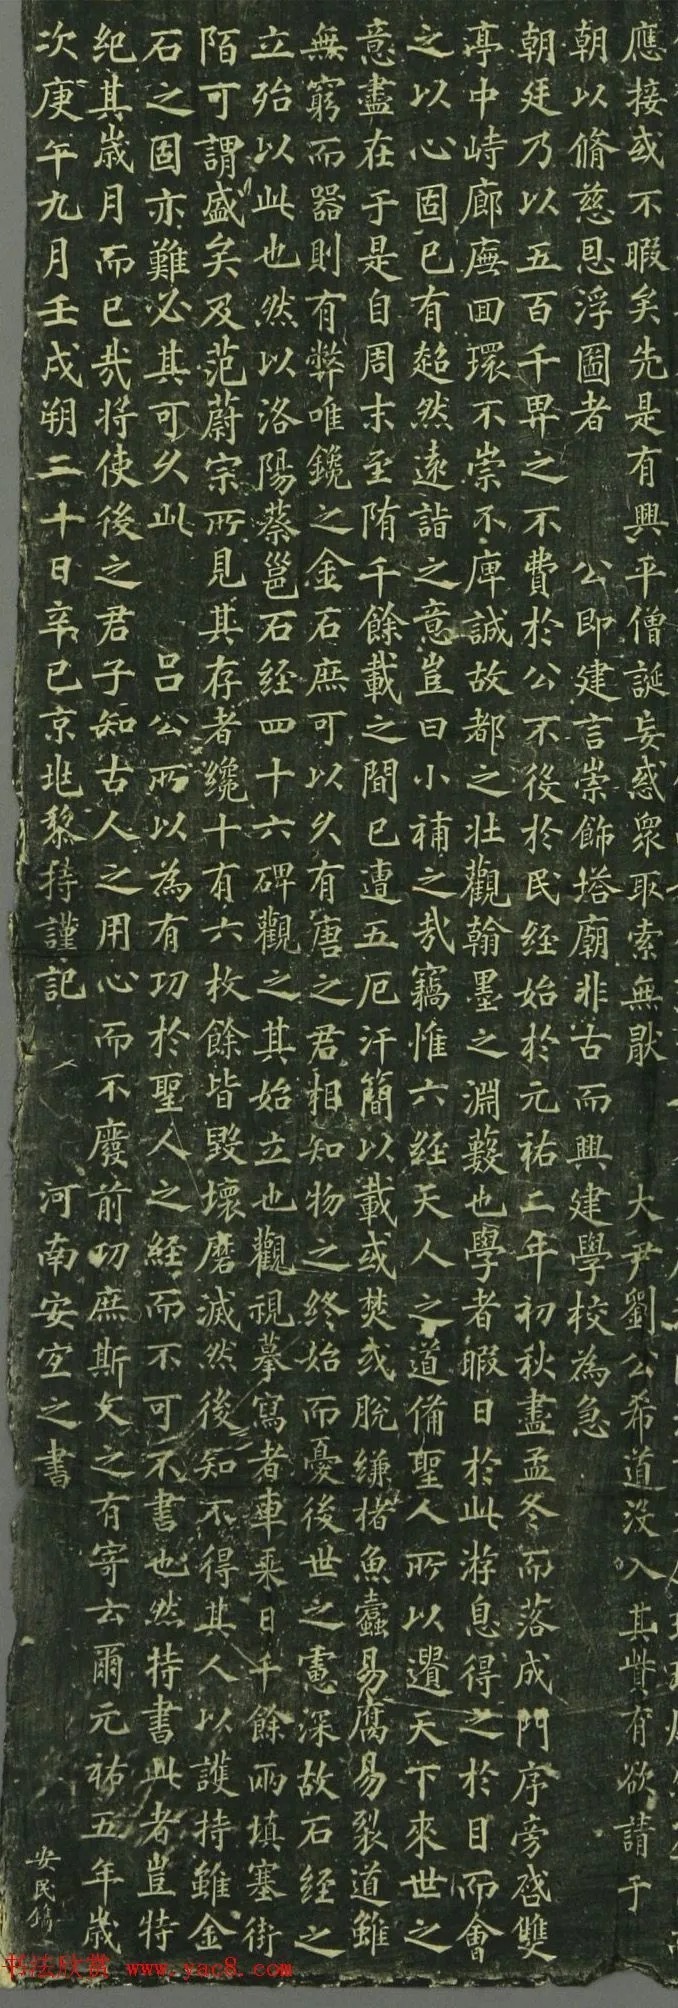 應接或不暇矣先是有興平僧誕妄惑衆取索無猒 大尹劉公希道沒入其貲有欲請于
朝以脩慈恩浮圖者 公即建言崇飾塔廟非古而興建學校為急
朝廷乃以五百千畀之不費於公不役於民經始於元祐二年初秋盡孟冬而落成門序旁啓雙
亭中峙廊廡回環不崇不庳誠故都之壯觀翰墨之淵藪也學者暇日於此游息得之於目而會
之以心固已有超然遠詣之意豈曰小補之哉竊惟六經天人之道備聖人所以遺天下來世之
意盡在于是自周末至隋千餘載之間已遭五厄汗簡以載或焚或脫縑楮魚蠹易腐易裂道雖
無窮而器則有弊唯鑱之金石庶可以久有唐之君相知物之終始而憂後世之慮深故石經之
立殆以此也然以洛陽蔡邕石經四十六碑觀之其始立也觀視摹寫者車乘日千餘兩填塞街
陌可謂盛矣及范蔚宗所見其存者纔十有六枚餘皆毀壞磨滅然後知不得其人以護持雖金
石之固亦難必其可久此 呂公所以為有功於聖人之經而不可不書也然持書此者豈特
紀其歲月而已哉將使後之君子知古人之用心而不廢前功庶斯文之有寄云爾元祐五年歲
次庚午九月壬戌朔二十日辛巳京兆黎持謹記 河南安宜之書
安民鐫
书法欣赏 www.yac8.com